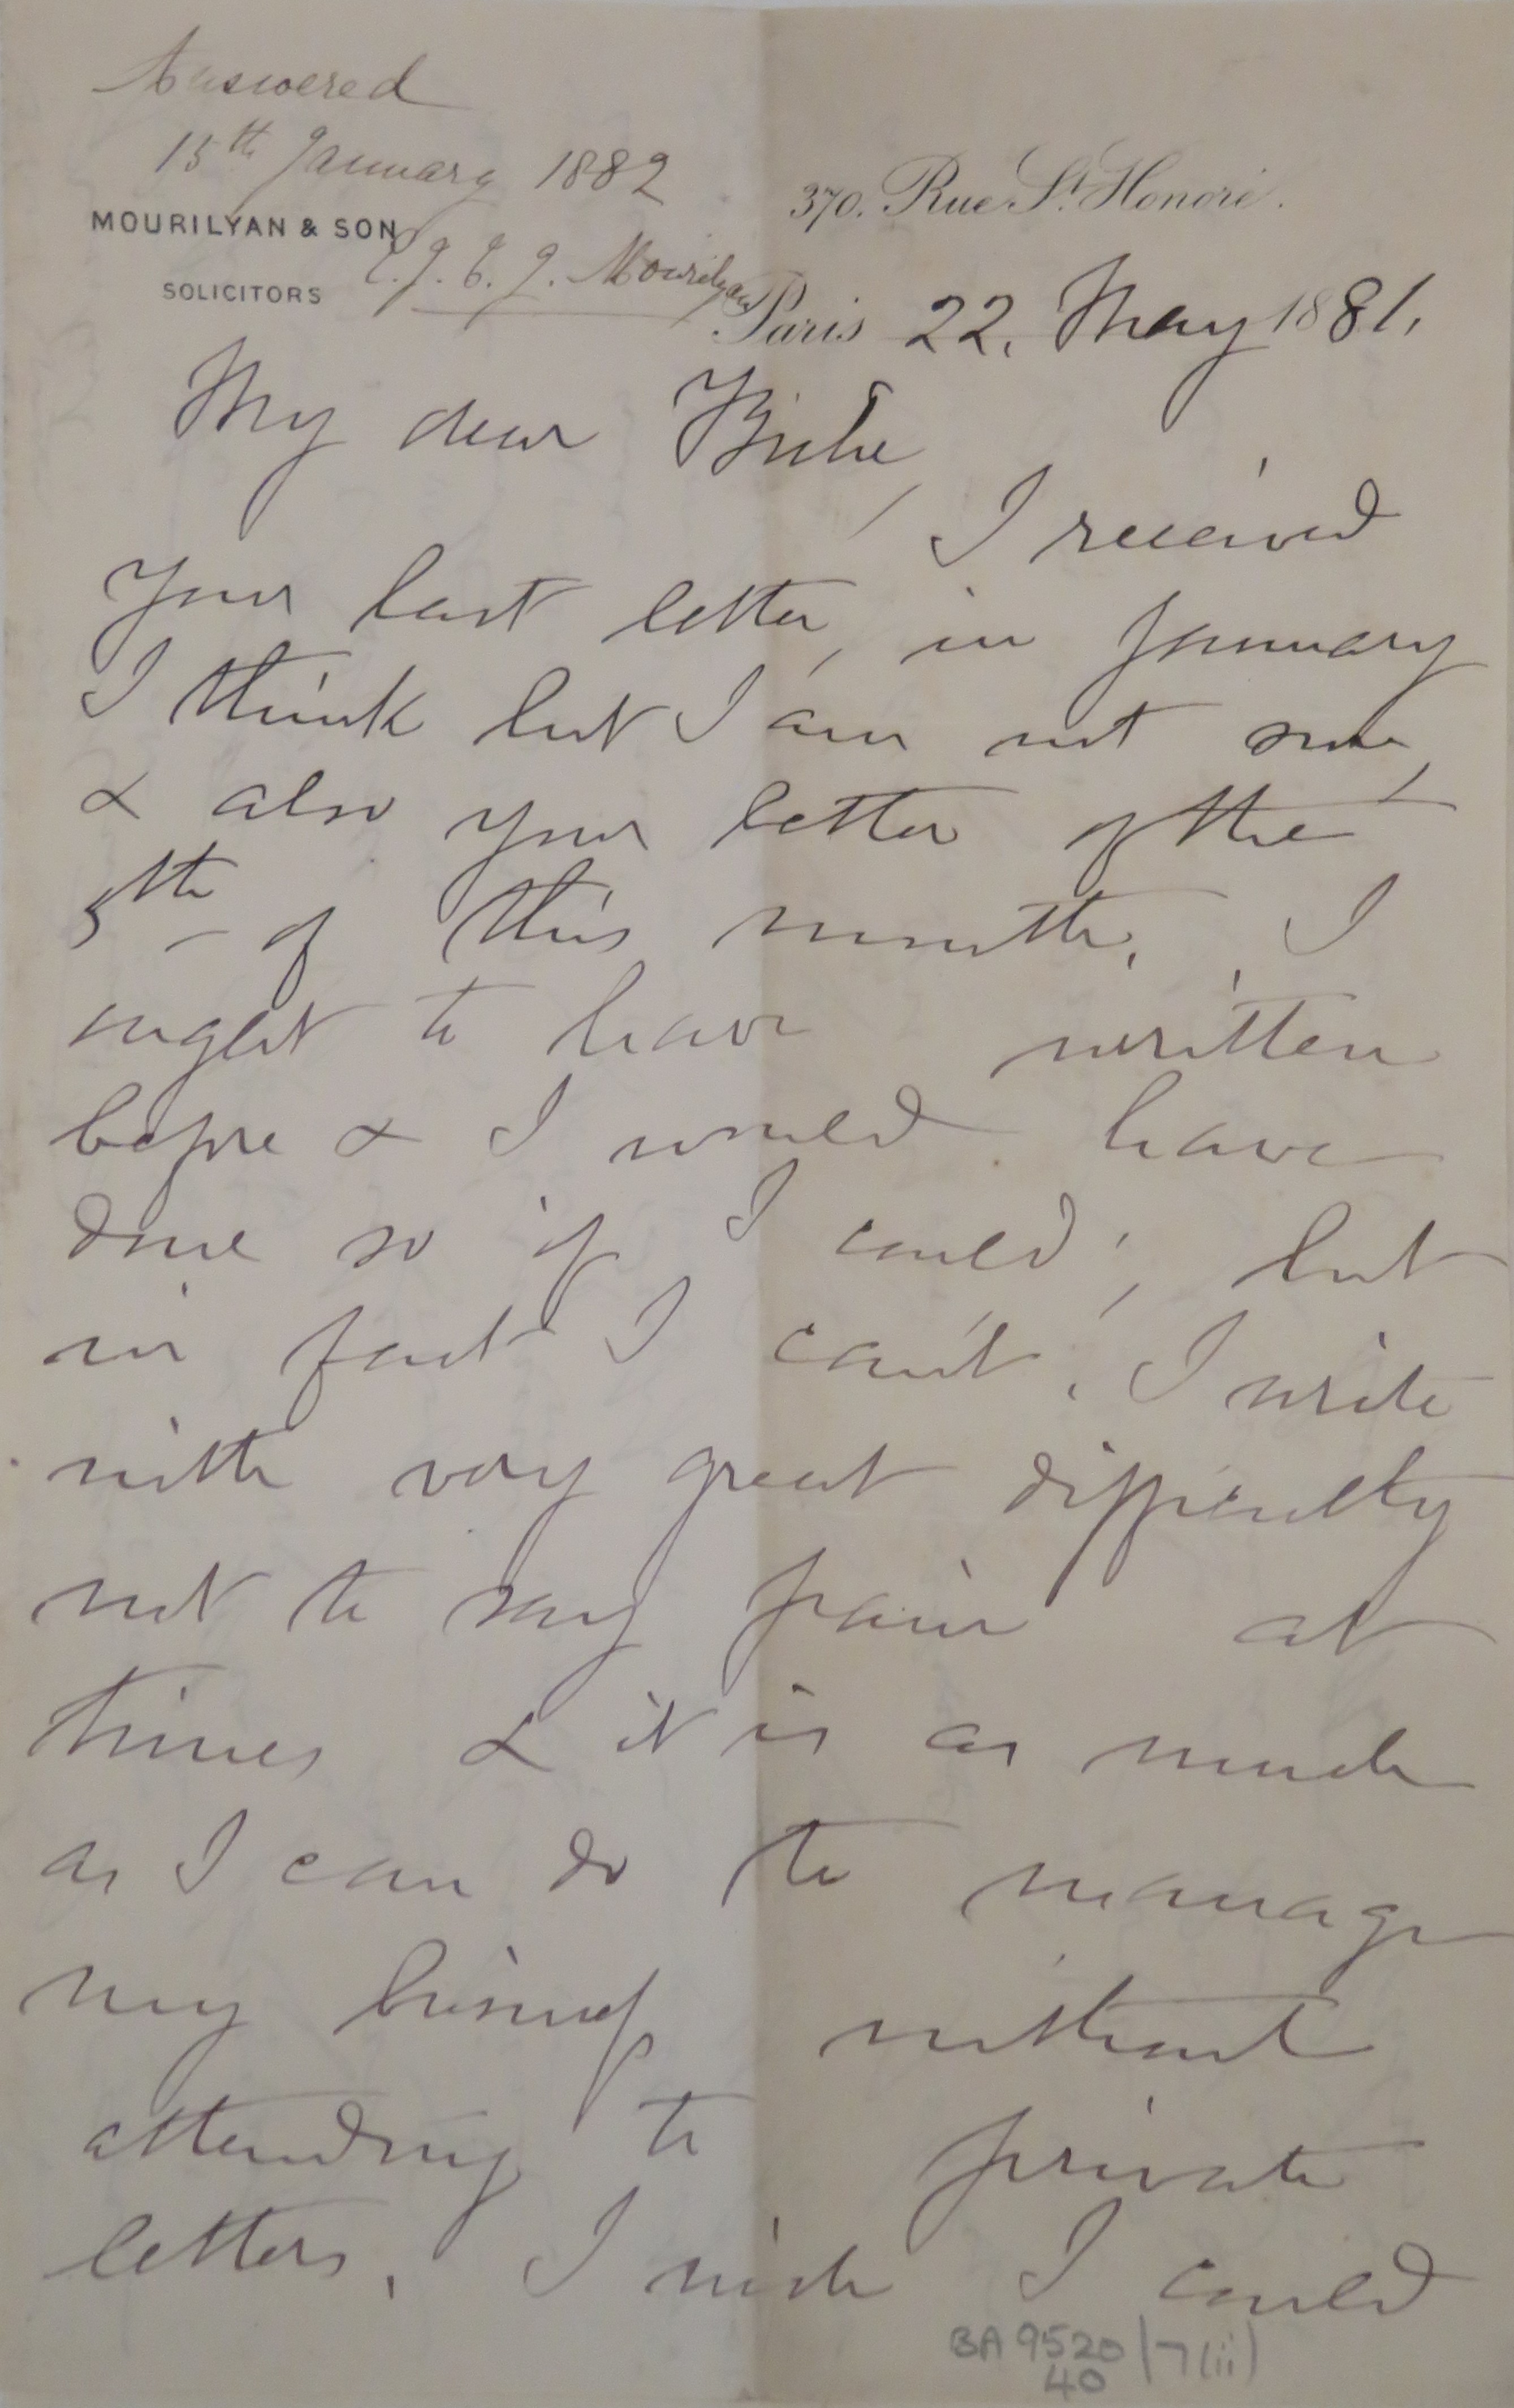 Answered
15th January 1882
MOURILYAN & SON
SOLICITORS
Mourilyan
370. Rue St. Honoré.
Paris 22. May 1881.
My dear
I received
your last letter, in January
I think but I am not sure,
& also your letter of the
5th of this month. I
ought to have written
before & I would have
done so if I could; but
in fact I can't. I write
with very great difficulty
not to say pain at
times & it is as much
as I can do to manage
my business without
attending to private
letters. I wish I could
BA 9520/7(ii)
40